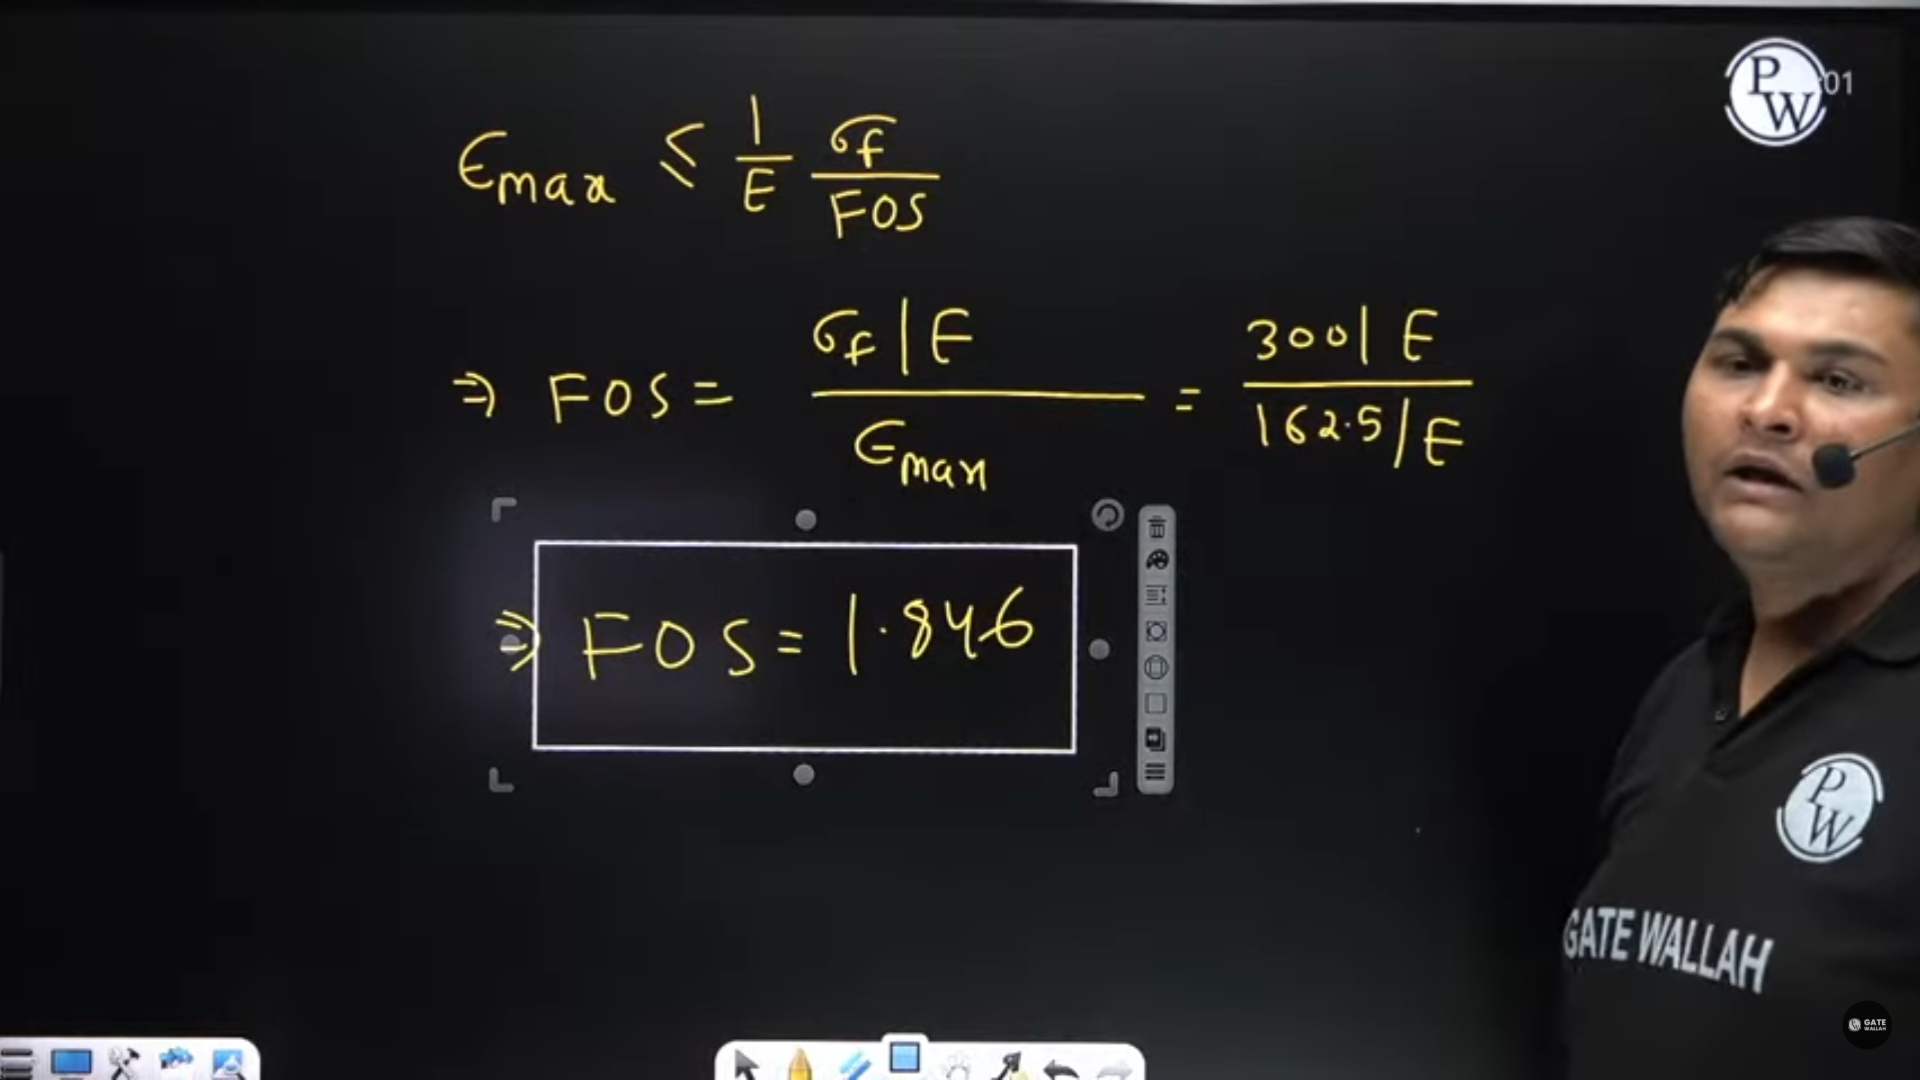 PW
01
ϵmax ≤ 1/E σf/FOS
⇒ FOS = σf/E / ϵmax = 300/E / 162.5/E
⇒ FOS = 1.846
PW
GATE WALLAH
GATE
WALLAH